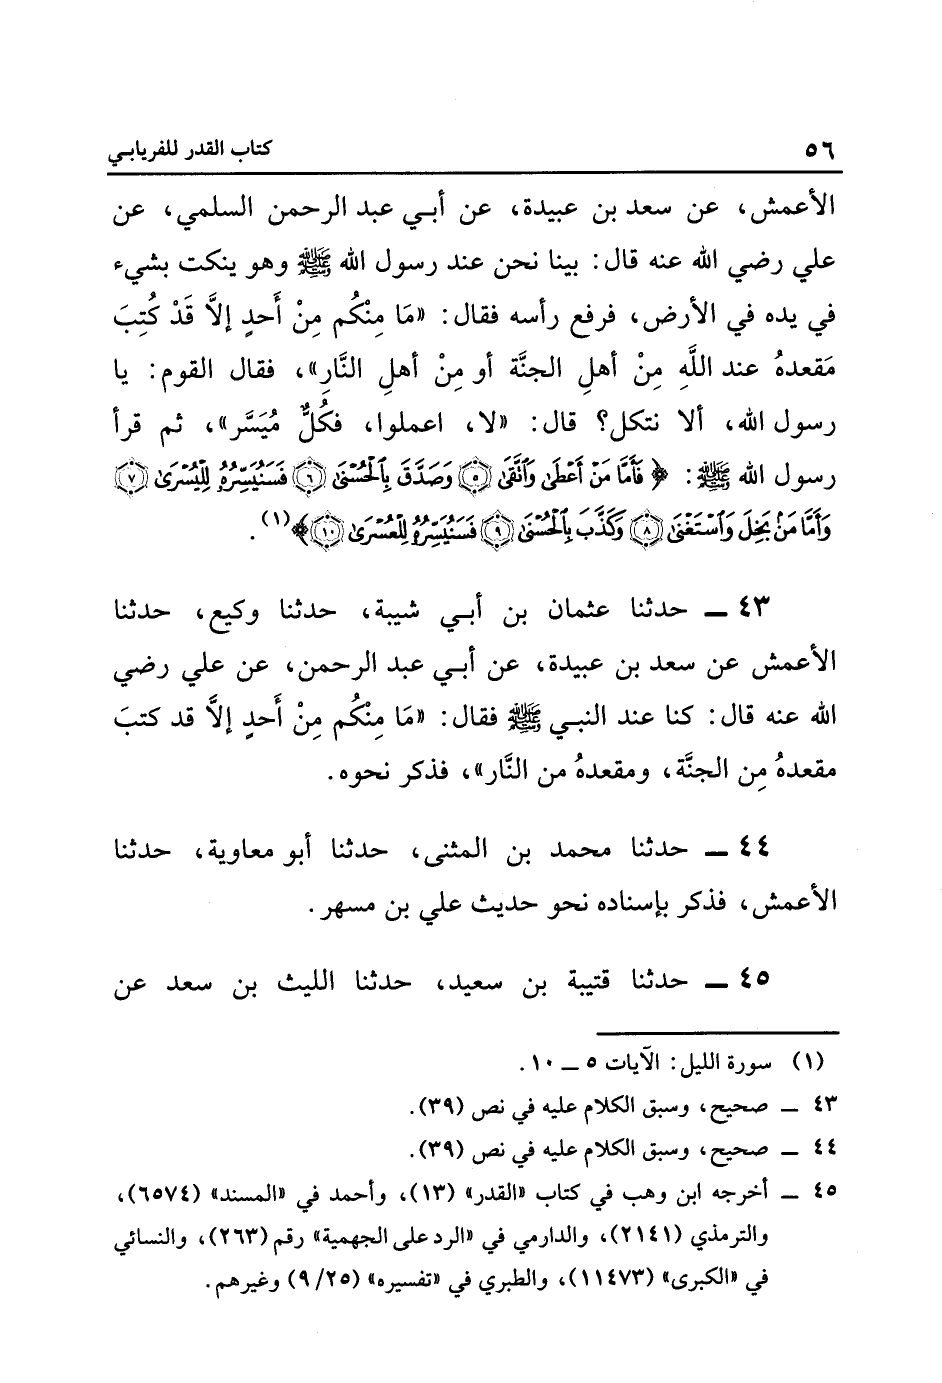 ٥٦ كتاب القدر للفريابي
الأعمش، عن سعد بن عبيدة، عن أبي عبد الرحمن السلمي، عن
علي رضي الله عنه قال: بينا نحن عند رسول الله ﷺ وهو ينكت بشيء
في يده في الأرض، فرفع رأسه فقال: «مَا مِنْكُم مِنْ أَحدٍ إلاَّ قَدْ كُتِبَ
مَقعدهُ عند اللَّهِ مِنْ أهلِ الجنَّة أو مِنْ أهلِ النَّارِ»، فقال القوم: يا
رسول الله، ألا نتكل؟ قال: «لا، اعملوا، فكُلٌّ مُيَسَّر»، ثم قرأ
رسول الله ﷺ: ﴿فَأَمَّا مَنْ أَعْطَىٰ وَٱتَّقَىٰ ۝٥ وَصَدَّقَ بِٱلْحُسْنَىٰ ۝٦ فَسَنُيَسِّرُهُۥ لِلْيُسْرَىٰ ۝٧
وَأَمَّا مَنۢ بَخِلَ وَٱسْتَغْنَىٰ ۝٨ وَكَذَّبَ بِٱلْحُسْنَىٰ ۝٩ فَسَنُيَسِّرُهُۥ لِلْعُسْرَىٰ ۝١٠﴾(١).
٤٣ ــ حدثنا عثمان بن أبي شيبة، حدثنا وكيع، حدثنا
الأعمش عن سعد بن عبيدة، عن أبي عبد الرحمن، عن علي رضي
الله عنه قال: كنا عند النبي ﷺ فقال: «مَا مِنْكُم مِنْ أَحدٍ إلاَّ قد كتبَ
مقعدهُ مِن الجنَّة، ومقعدهُ من النَّار»، فذكر نحوه.
٤٤ ــ حدثنا محمد بن المثنى، حدثنا أبو معاوية، حدثنا
الأعمش، فذكر بإسناده نحو حديث علي بن مسهر.
٤٥ ــ حدثنا قتيبة بن سعيد، حدثنا الليث بن سعد عن
(١) سورة الليل: الآيات ٥ ــ ١٠.
٤٣ ــ صحيح، وسبق الكلام عليه في نص (٣٩).
٤٤ ــ صحيح، وسبق الكلام عليه في نص (٣٩).
٤٥ ــ أخرجه ابن وهب في كتاب «القدر» (١٣)، وأحمد في «المسند» (٦٥٧٤)،
والترمذي (٢١٤١)، والدارمي في «الرد على الجهمية» رقم (٢٦٣)، والنسائي
في «الكبرى» (١١٤٧٣)، والطبري في «تفسيره» (٩/٢٥) وغيرهم.